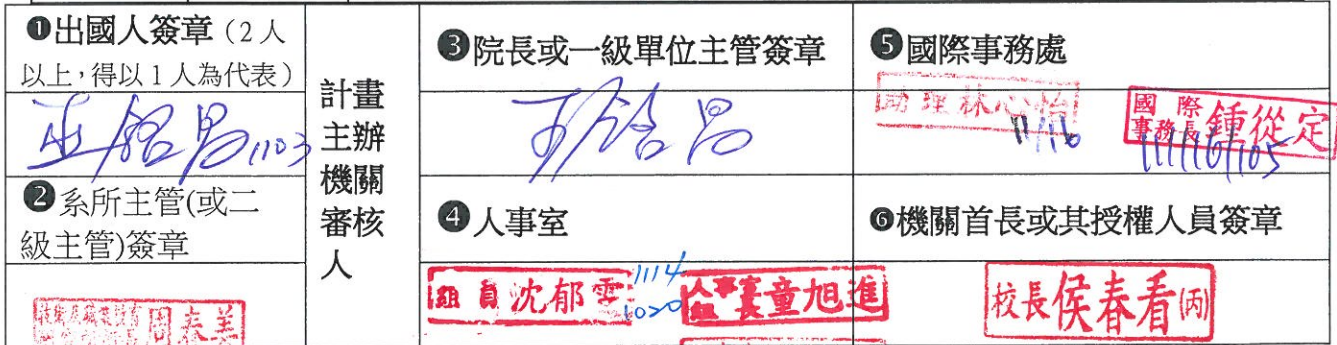 ❶出國人簽章（2人
以上，得以1人為代表）
1103
❷系所主管(或二
級主管)簽章
周春美
計畫
主辦
機關
審核
人
❸院長或一級單位主管簽章
❹人事室
組員沈郁雲
1114
1020
人事室
組長童旭進
❺國際事務處
助理林心怡
11/16
國際
事務長鍾從定
❻機關首長或其授權人員簽章
校長侯春看(丙)